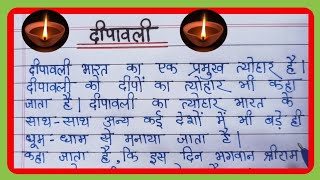 दीपावली
दीपावली भारत का एक प्रमुख त्योहार है।
दीपावली को दीपों का त्योहार भी कहा
जाता है। दीपावली का त्योहार भारत के
साथ-साथ अन्य कई देशों में भी बड़े ही
धूम-धाम से मनाया जाता है।
कहा जाता है, कि इस दिन भगवान श्रीराम